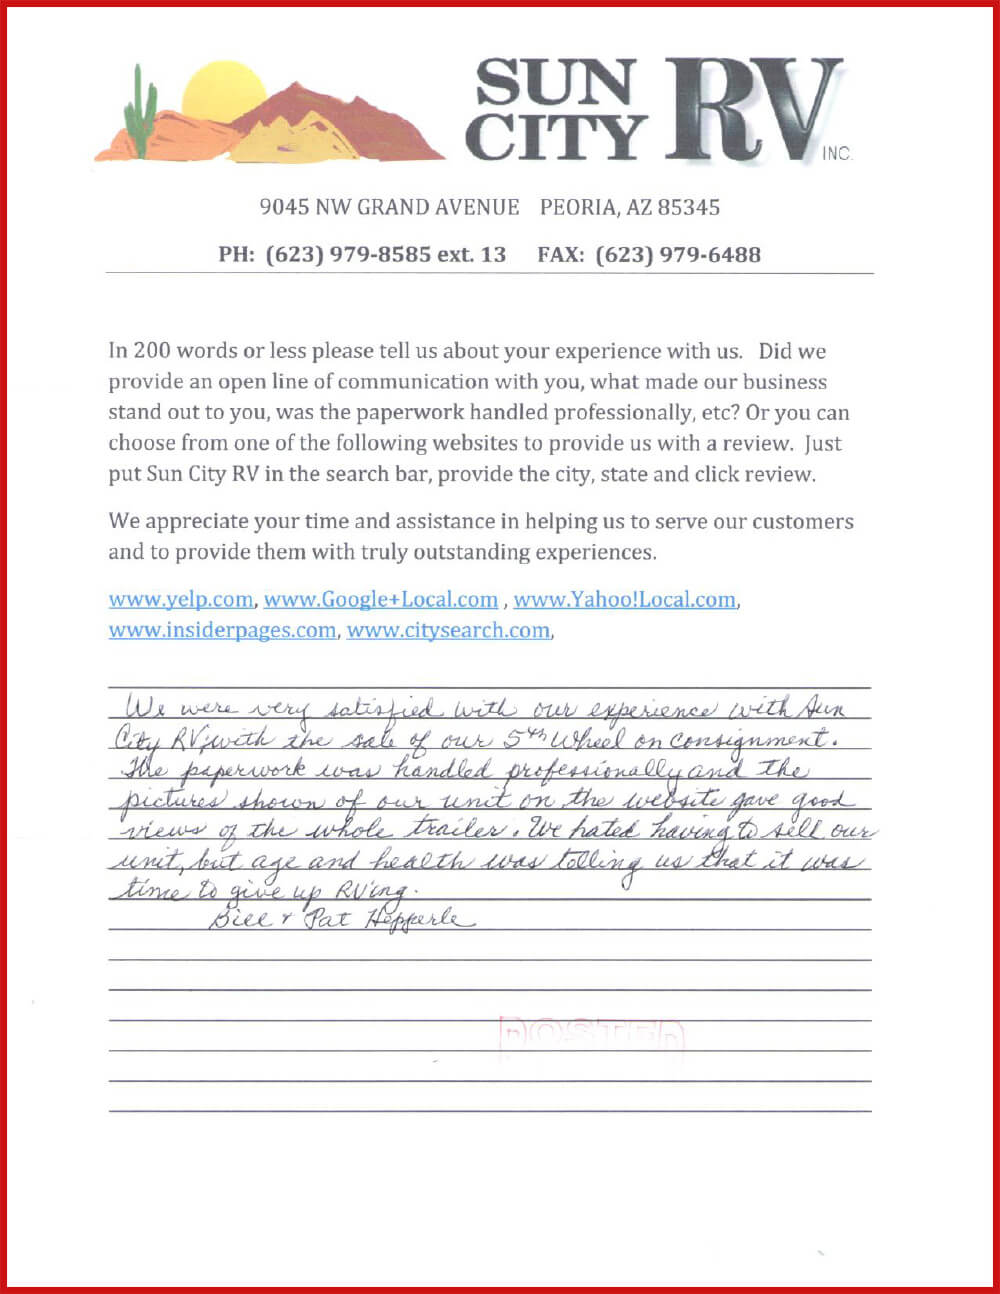 SUN
CITY RV INC.
9045 NW GRAND AVENUE PEORIA, AZ 85345
PH: (623) 979-8585 ext. 13 FAX: (623) 979-6488
In 200 words or less please tell us about your experience with us. Did we
provide an open line of communication with you, what made our business
stand out to you, was the paperwork handled professionally, etc? Or you can
choose from one of the following websites to provide us with a review. Just
put Sun City RV in the search bar, provide the city, state and click review.
We appreciate your time and assistance in helping us to serve our customers
and to provide them with truly outstanding experiences.
www.yelp.com, www.Google+Local.com , www.Yahoo!Local.com,
www.insiderpages.com, www.citysearch.com,
We were very satisfied with our experience with Sun
City RV, with the sale of our 5th Wheel on consignment.
The paperwork was handled professionally and the
pictures shown of our unit on the website gave good
views of the whole trailer. We hated having to sell our
unit, but age and health was telling us that it was
time to give up RV'ing.
Bill & Pat Hepperle
POSTED